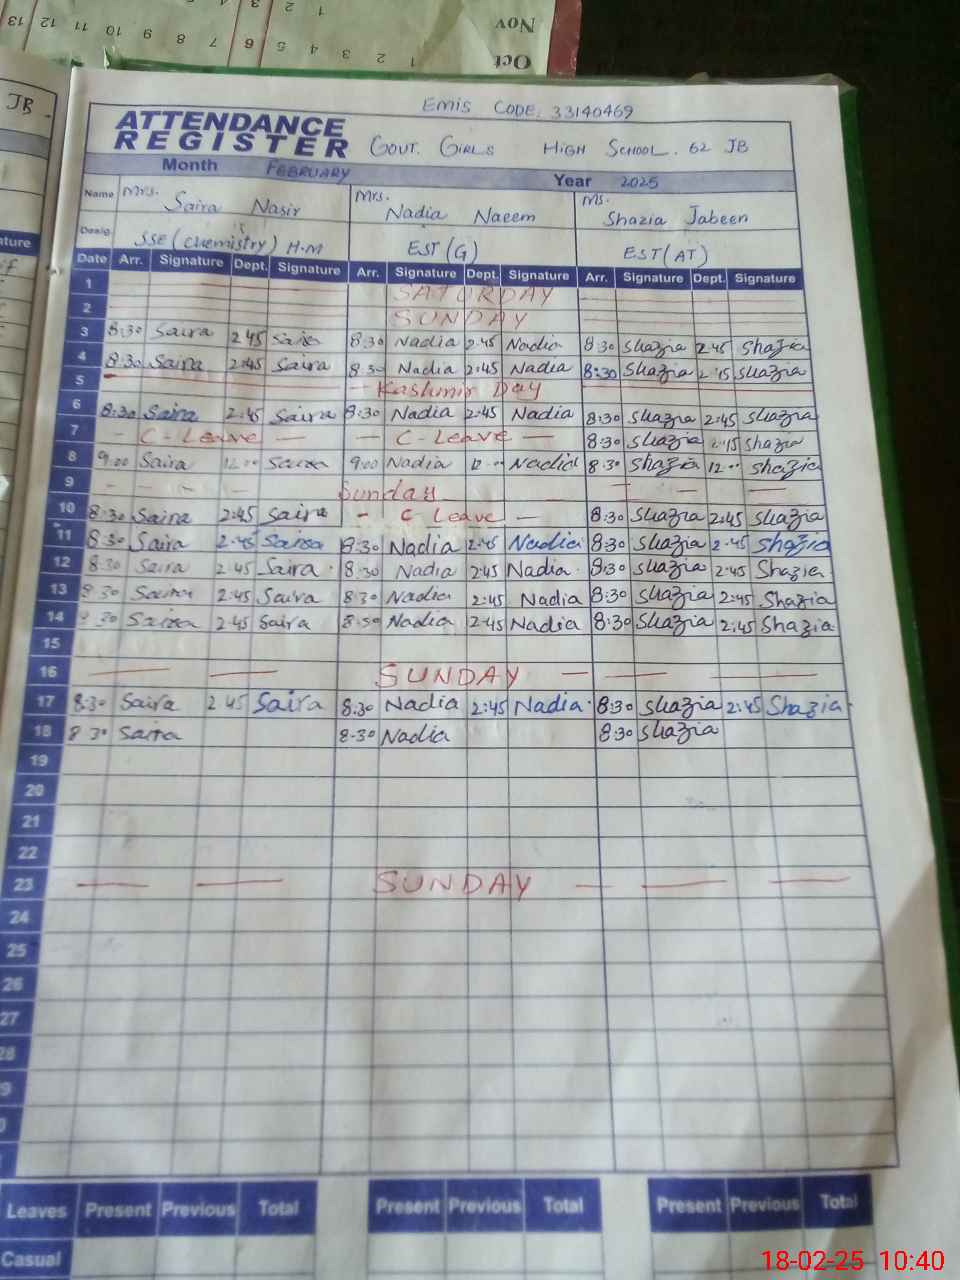 Oct 1 2 3 4 5 6 7 8 9 10 11 12 13
Nov 1 2 3
JB.
Emis CODE. 33140469
ATTENDANCE
REGISTER GOVT. GIRLS HIGH SCHOOL. 62 JB
Month FEBRUARY Year 2025
Name Mrs. Saira Nasir Mrs. Nadia Naeem Ms. Shazia Jabeen
Desig. SSE (Chemistry) H.M EST (G) EST (AT)
Date Arr. Signature Dept. Signature Arr. Signature Dept. Signature Arr. Signature Dept. Signature
1 SATURDAY
2 SUNDAY
3 8:30 Saira 2:45 Saira 8:30 Nadia 2:45 Nadia 8:30 Shazia 2:45 Shazia
4 8:30 Saira 2:45 Saira 8:30 Nadia 2:45 Nadia 8:30 Shazia 2:45 Shazia
5 - Kashmir Day
6 8:30 Saira 2:45 Saira 8:30 Nadia 2:45 Nadia 8:30 Shazia 2:45 Shazia
7 - C-Leave - - C-Leave - 8:30 Shazia 2:45 Shazia
8 9:00 Saira 12:00 Saira 9:00 Nadia 12:00 Nadia 8:30 Shazia 12:00 Shazia
9 - - - - Sunday - - -
10 8:30 Saira 2:45 Saira - C-Leave - 8:30 Shazia 2:45 Shazia
11 8:30 Saira 2:45 Saira 8:30 Nadia 2:45 Nadia 8:30 Shazia 2:45 Shazia
12 8:30 Saira 2:45 Saira. 8:30 Nadia 2:45 Nadia. 8:30 Shazia 2:45 Shazia.
13 8:30 Saira 2:45 Saira 8:30 Nadia 2:45 Nadia 8:30 Shazia 2:45 Shazia
14 8:30 Saira 2:45 Saira 8:30 Nadia 2:45 Nadia 8:30 Shazia 2:45 Shazia
15
16 — — SUNDAY — — — —
17 8:30 Saira 2:45 Saira 8:30 Nadia 2:45 Nadia. 8:30 Shazia 2:45 Shazia.
18 8:30 Saira 8:30 Nadia 8:30 Shazia
19
20
21
22
23 — — SUNDAY — — —
24
25
26
27
Leaves Present Previous Total Present Previous Total Present Previous Total
Casual
18-02-25 10:40